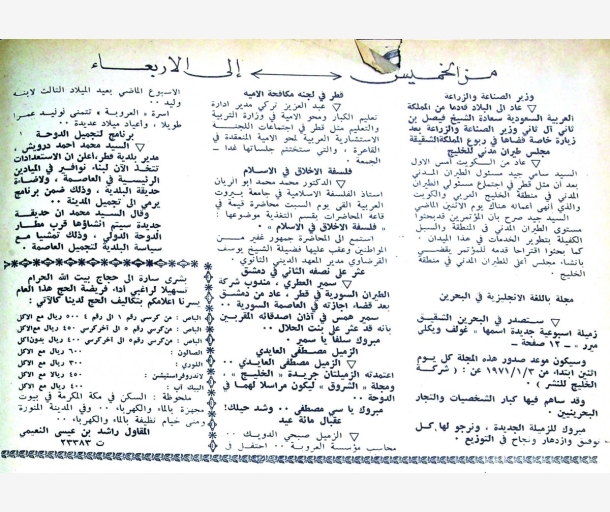 من الخميس ← → إلى الاربعاء
وزير الصناعة والزراعة
▽ عاد الى البلاد قادما من المملكة
العربية السعودية سعادة الشيخ فيصل بن
ثاني آل ثاني وزير الصناعة والزراعة بعد
زيارة خاصة قضاها في ربوع المملكة الشقيقة
مجلس طيران مدني للخليج
▽ عاد من الكويت أمس الاول
السيد سامي جيد مسئول الطيران المدني
بعد ان مثل قطر في اجتماع مسئولي الطيران
المدني في منطقة الخليج العربي والكويت
والذي انهى اعماله هناك يوم الاثنين الماضي
السيد جيد صرح بان المؤتمرين قد بحثوا
مستوى الطيران المدني في المنطقة والسبل
الكفيلة بتطوير الخدمات في هذا الميدان ٠
كما بحثوا اقتراحا قدمه للمؤتمر يقضي
بانشاء مجلس أعلى للطيران المدني في منطقة
الخليج
مجلة باللغة الانجليزية في البحرين
▽ ستصدر في البحرين الشقيق
زميلة اسبوعية جديدة اسمها « غولف ويكلي
ميرر » ــ ١٢ صفحة ــ
وسيكون موعد صدور هذه المجلة كل يوم
اثنين ابتداء من ١٩٧١/١/٣ عن : ( شركة
الخليج للنشر ) ٠
وقد ساهم فيها كبار الشخصيات والتجار
البحرينيين ٠
مبروك للزميلة الجديدة ، ونرجو لها كل
توفيق وازدهار ونجاح في التوزيع ٠
قطر في لجنه مكافحة الاميه
▽ عبد العزيز تركي مدير ادارة
تعليم الكبار ومحو الامية في وزارة التربية
والتعليم مثل قطر في اجتماعات اللجنة
الاستشارية العربية لمحو الامية المنعقدة في
القاهرة ، والتي ستختتم جلساتها غدا ــ
الجمعة ٠
فلسفة الاخلاق في الاسلام
▽ الدكتور محمد محمد ابو الريان
استاذ الفلسفة الاسلامية في جامعة بيروت
العربية القى يوم السبت محاضرة قيمة في
قاعة المحاضرات بقسم التغذية موضوعها :
« فلسفة الاخلاق في الاسلام » ٠
استمع الى المحاضرة جمهور غفير من
المواطنين وعقب عليها فضيلة الشيخ يوسف
القرضاوي مدير المعهد الديني الثانوي
عثر على نصفه الثاني في دمشق
▽ سمير العطري ، مندوب شركة
الطيران السورية في قطر ، عاد من دمشق
بعد قضاء اجازته في العاصمة السورية ٠٠
سمير همس في آذان اصدقائه المقربين
بانه قد عثر على بنت الحلال ٠٠
مبروك سلفا يا سمير ٠
الزميل مصطفى العابدي
▽ الزميل مصطفى العابدي ٠٠
اعتمدته الزميلتان جريدة « الخليج » ،
ومجلة « الشروق » ليكون مراسلا لهما في
الدوحة ٠٠
مبروك يا سي مصطفى ٠٠ وشد حيلك!
عقبال مائة عيد
▽ الزميل صبحي الدويك ٠٠
محاسب مؤسسة العروبة ٠٠ احتفل في
الاسبوع الماضي بعيد الميلاد الثالث لابنه
وليد ٠٠
اسرة « العروبة » تتمنى لوليد عمرا
طويلا ، واعياد ميلاد عديدة ٠٠
برنامج لتجميل الدوحة
▽ السيد محمد احمد درويش ،
مدير بلدية قطر،اعلن ان الاستعدادات
تتخذ الآن لبناء نوافير في الميادين
الرئيسية في العاصمة ، ولاضاءة
حديقة البلدية ، وذلك ضمن برنامج
يرمى الى تجميل المدينة ٠٠
وقال السيد محمد ان حديقة
جديدة سيتم انشاؤها قرب مطار
الدوحة الدولي ، وذلك تمشيا مع
سياسة البلدية لتجميل العاصمة ٠
بشرى سارة الى حجاج بيت الله الحرام
تسهيلا لراغبي اداء فريضة الحج هذا العام
يسرنا اعلامكم بتكاليف الحج لدينا كالآتي :
الباص : من كرسي رقم ١ الى رقم ٤ ٥٠٠ ريال مع الاكل
الباص : من كرسي رقم الى آخر كرسي ٤٥٠ ريال مع الاكل
الباص : من كرسي رقم الى آخر كرسي ٤٠٠ ريال بدون اكل
الصالون : ٦٠٠ ريال مع الاكل
اللوري : ٣٠٠ ريال مع الاكل
لاندروفر استيشن : ٤٥٠ ريال مع الاكل
البيك آب : ٤٠٠ ريال مع الاكل
ملحوظة : السكن في مكة المكرمة في بيوت
مجهزة بالماء والكهرباء ٠٠ وفي المدينة المنورة
ومنى خيام نظيفة بالماء والكهرباء ٠٠
المقاول راشد بن عيسى النعيمي
ت ٢٣٣٨٣